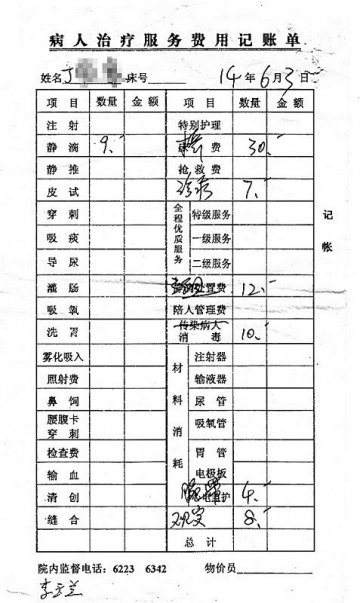 病人治疗服务费用记账单
姓名 床号 14年6月3日
项目 数量 金额 项目 数量 金额
注射 特别护理
静滴 9.- 费 30.-
静推 抢救费
皮试 诊察 7.-
穿刺 全程优质服务 特级服务
吸痰 一级服务
导尿 二级服务
灌肠 处置费 12.-
吸氧 陪人管理费
洗胃 传染病人消毒 10.-
雾化吸入 材料消耗 注射器
照射费 输液器
鼻饲 尿管
腰腹卡穿刺 吸氧管
检查费 胃管
输血 电极板
清创 护 4.-
缝合 观察 8.-
总计
记帐
院内监督电话：6223 6342 物价员